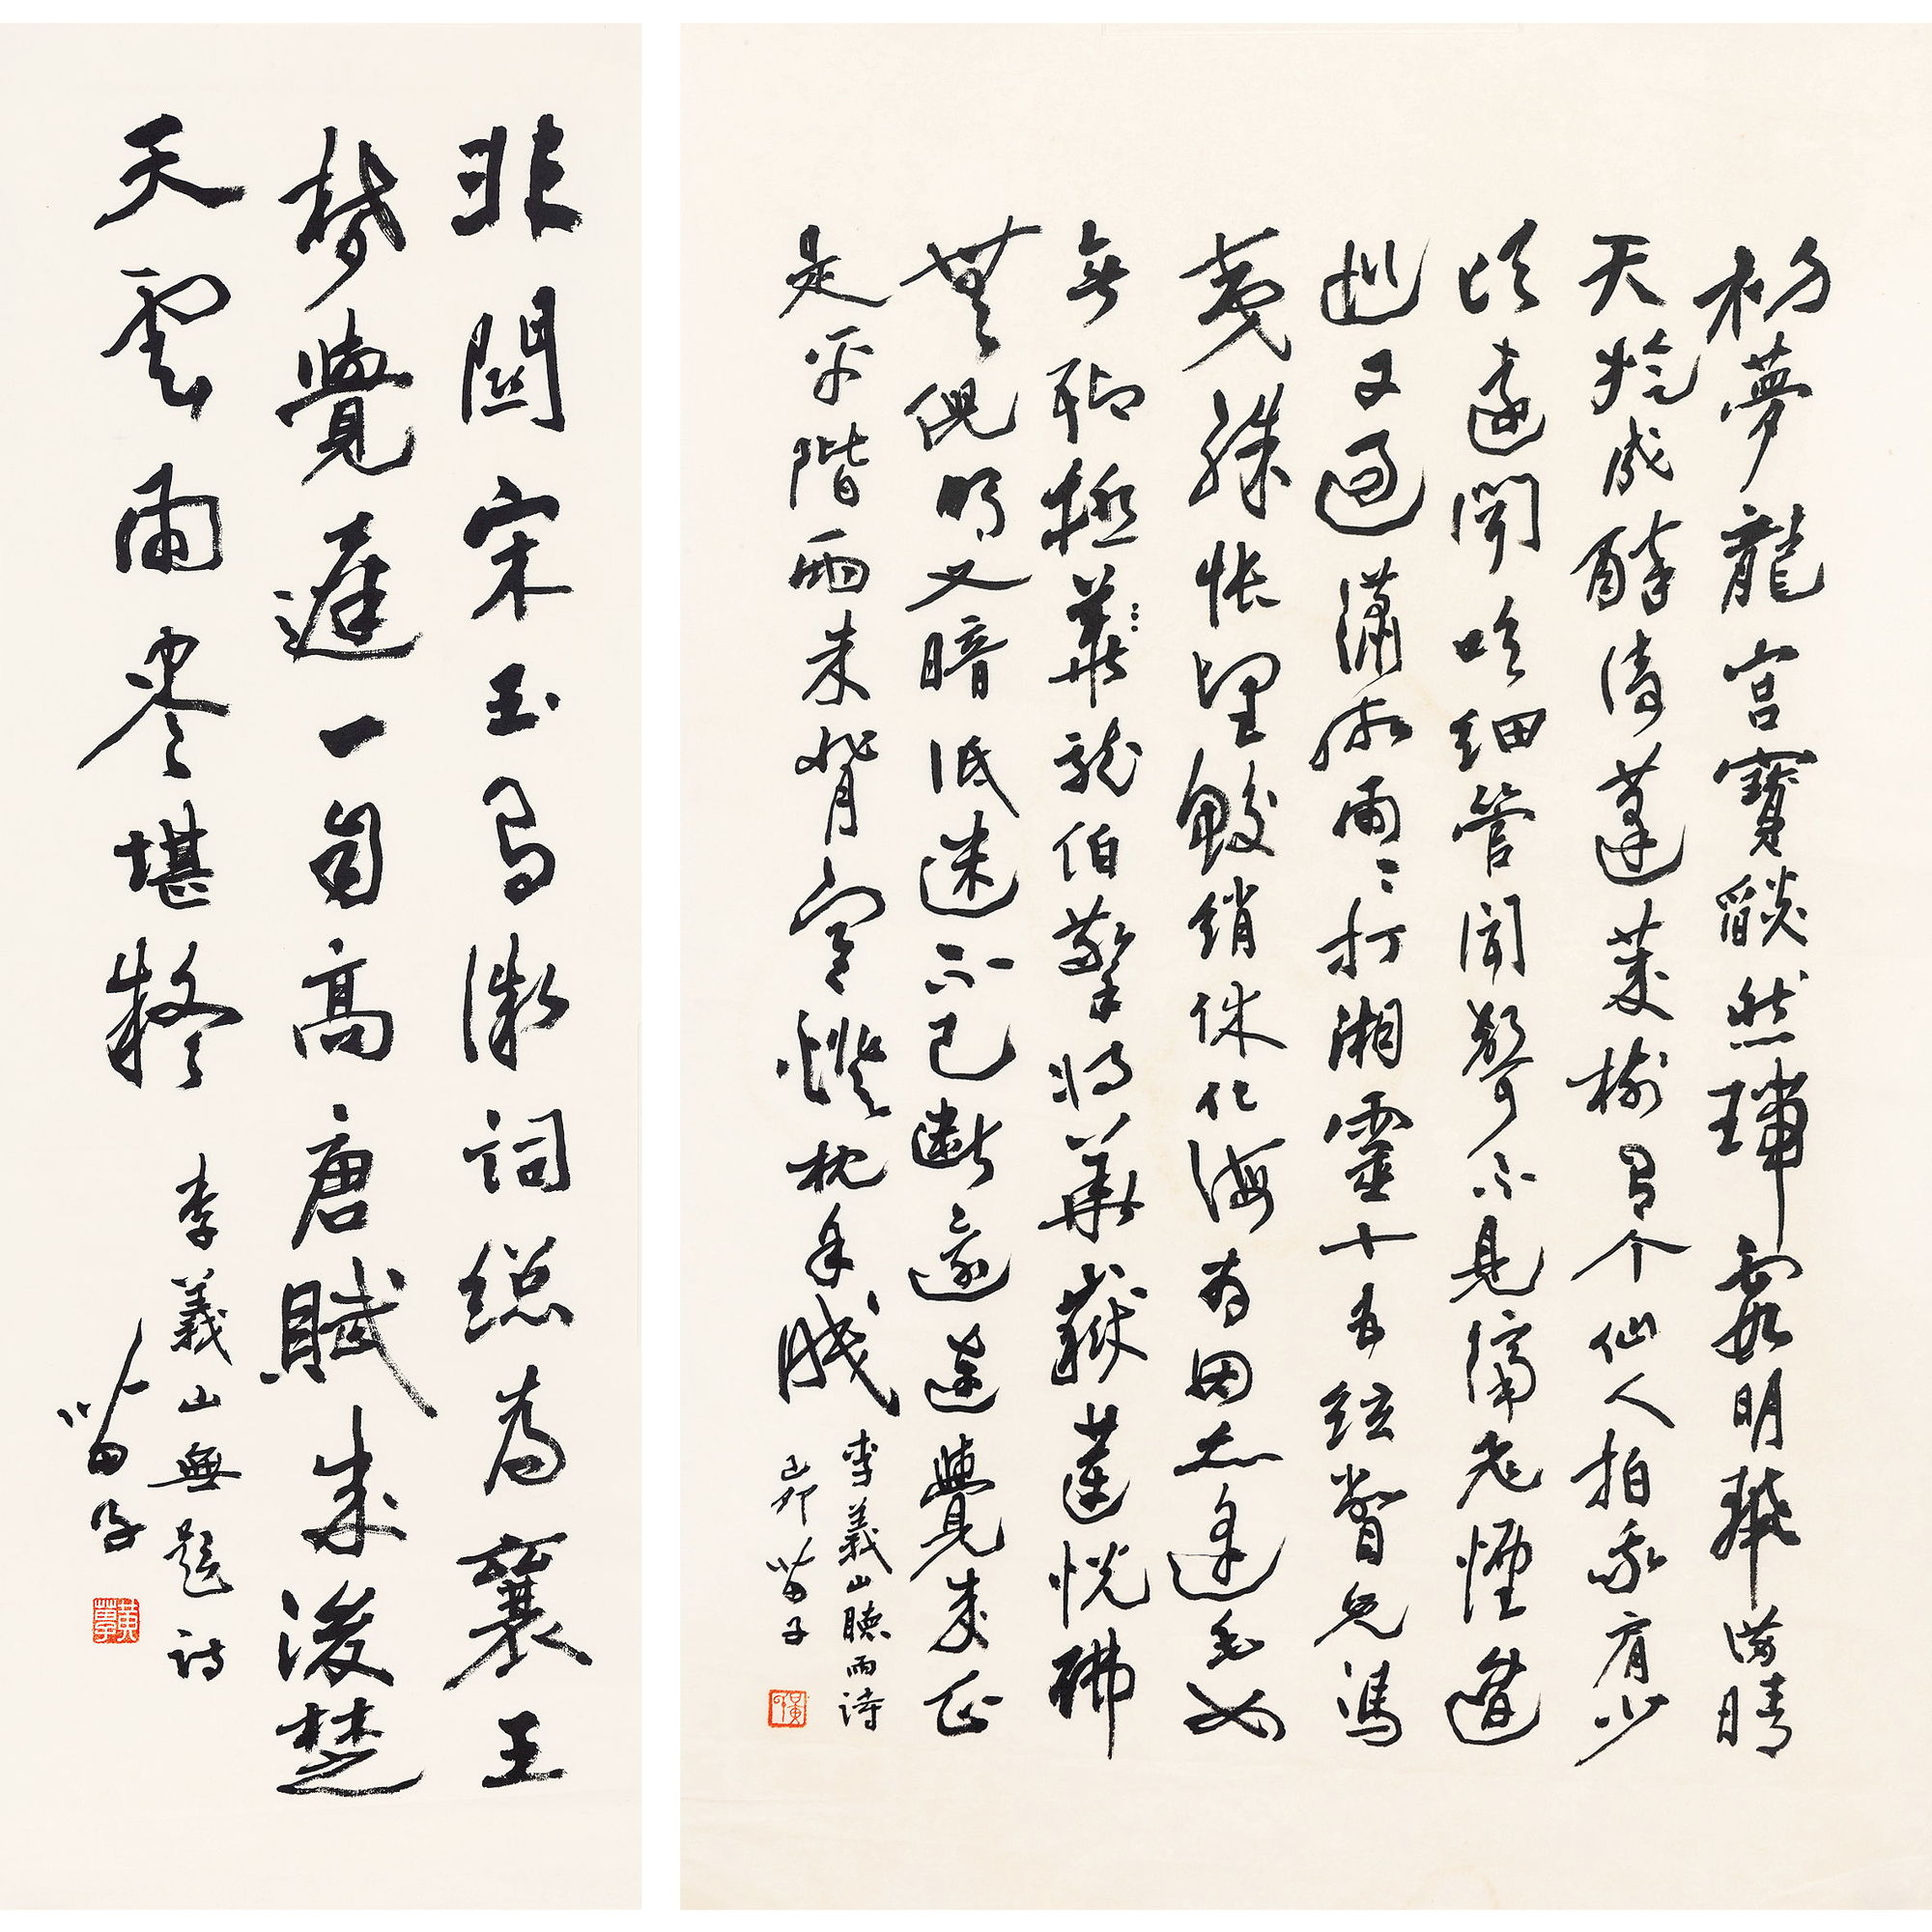 初夢龍宮寶燄然瑞霞明麗滿晴
天旋成醉倚蓬萊樹有个仙人拍我肩少
頃遠聞吹細管聞聲不見隔飛煙逡
巡又過瀟湘雨〻打湘靈十五絃瞥見馮
夷殊悵望鮫綃休化海为田亦逢毛女
無聊極華龍伯擎將華嶽蓮恍彿
無倪明又暗低迷不已斷還連覺來正
是平階雨未背寒燈枕手眠
李義山聽雨詩
己卯苗子
非關宋玉有微詞總為襄王
夢覺遲一自高唐賦成後楚
天雲雨盡堪疑
李義山無題詩
苗子